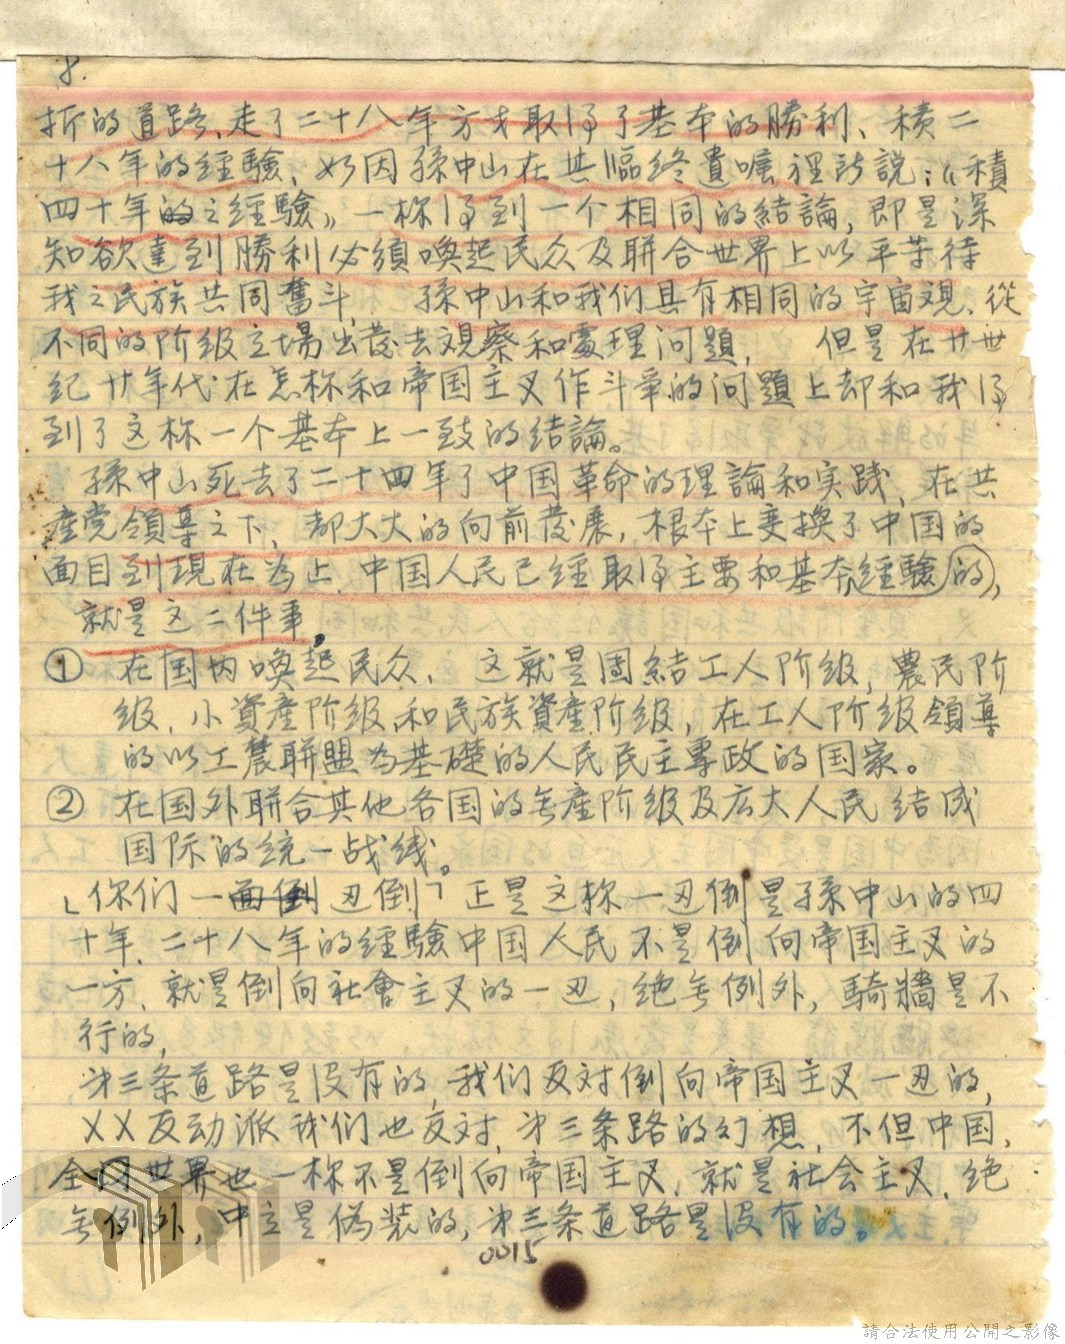 8.
折的道路、走了二十八年方才取得了基本的勝利、積二
十八年的經驗、如因孫中山在其臨終遺囑裡所說:《積
四十年的之經驗》一样得到一个相同的結論,即是深
知欲達到勝利必須喚起民众及聯合世界上以平等待
我之民族共同奮斗, 孫中山和我们具有相同的宇宙观、從
不同的阶級立場出发去观察和處理问題, 但是在廿世
紀廿年代在怎样和帝国主义作斗爭的问題上却和我们得
到了这样一个基本上一致的结論。
孫中山死去了二十四年了中国革命的理論和实践、在共
產党領導之下、都大大的向前发展,根本上变換了中国的
面目到現在為止、中国人民已經取得主要和基本經驗的,
就是这二件事,
① 在国內喚起民众、这就是團結工人阶級,農民阶
級、小資產阶級和民族資產阶級,在工人阶級領導
的以工農聯盟为基礎的人民民主專政的国家。
② 在国外聯合其他各国的無產阶級及広大人民結成
国际的統一战线。
「你们一面倒 边倒」正是这样一边倒是孫中山的四
十年、二十八年的經驗中国人民不是倒向帝国主义的
一方、就是倒向社會主义的一边,绝無例外,騎牆是不
行的,
第三条道路是沒有的,我们反对倒向帝国主义一边的,
XX反动派我们也反对,第三条路的幻想、不但中国、
全国世界也一样不是倒向帝国主义、就是社会主义、绝
無例外,中立是偽裝的,第三条道路是沒有的。
0015
請合法使用公開之影像